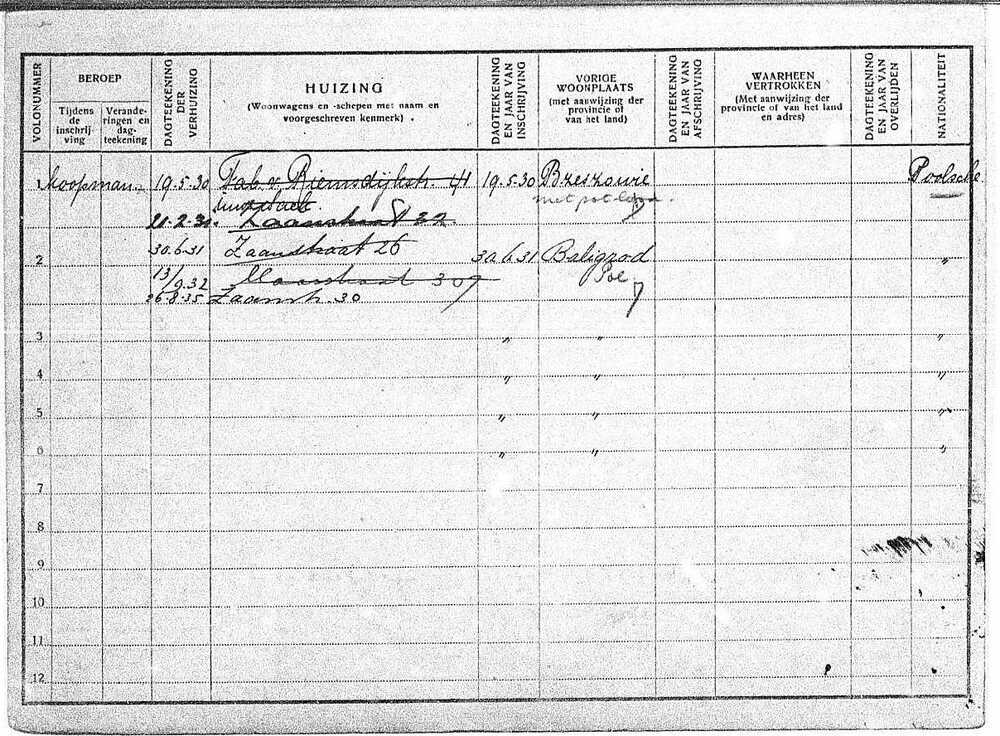 VOLGNUMMER
BEROEP
Tijdens de inschrijving
Veranderingen en dagteekening
DAGTEEKENING DER VERHUIZING
HUIZING
(Woonwagens en -schepen met naam en
voorgeschreven kenmerk)
DAGTEEKENING EN JAAR VAN INSCHRIJVING
VORIGE
WOONPLAATS
(met aanwijzing der
provincie of
van het land)
DAGTEEKENING EN JAAR VAN AFSCHRIJVING
WAARHEEN
VERTROKKEN
(Met aanwijzing der
provincie of van het land
en adres)
DAGTEEKENING EN JAAR VAN OVERLIJDEN
NATIONALITEIT
1 koopman 19.5.30 v. Riemsdijkstr. 41 19.5.30 Brzeszowie Poolsche
Zaanstraat 32
30.6.31 Zaanstraat 26
2 30.6.31 Baligrod "
13/9.32 307 Pol
26.8.35 Zaanstr. 30
3 " " "
4 " " "
5 " " "
6 " " "
7
8
9
10
11
12